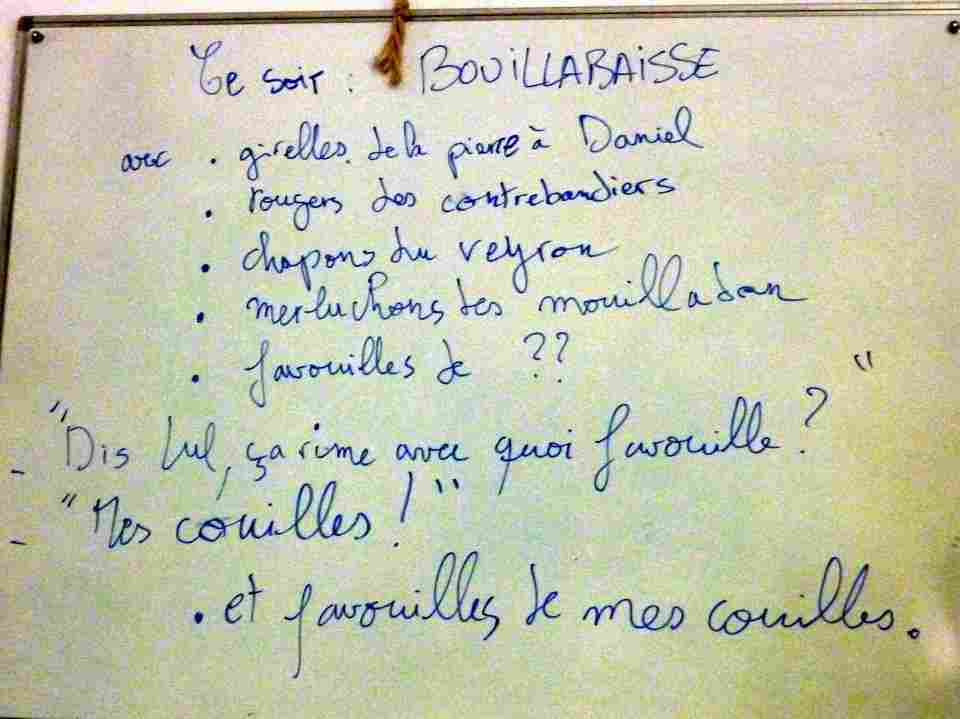 Ce soir : BOUILLABAISSE
avec . girelles de la pierre à Daniel
. rougets des contrebandiers
. chapons du veyron
. merluchons des mouilladan
. favouilles de ??
- "Dis Lul, ça rime avec quoi favouille ?"
- "Mes couilles !"
. et favouilles de mes couilles.